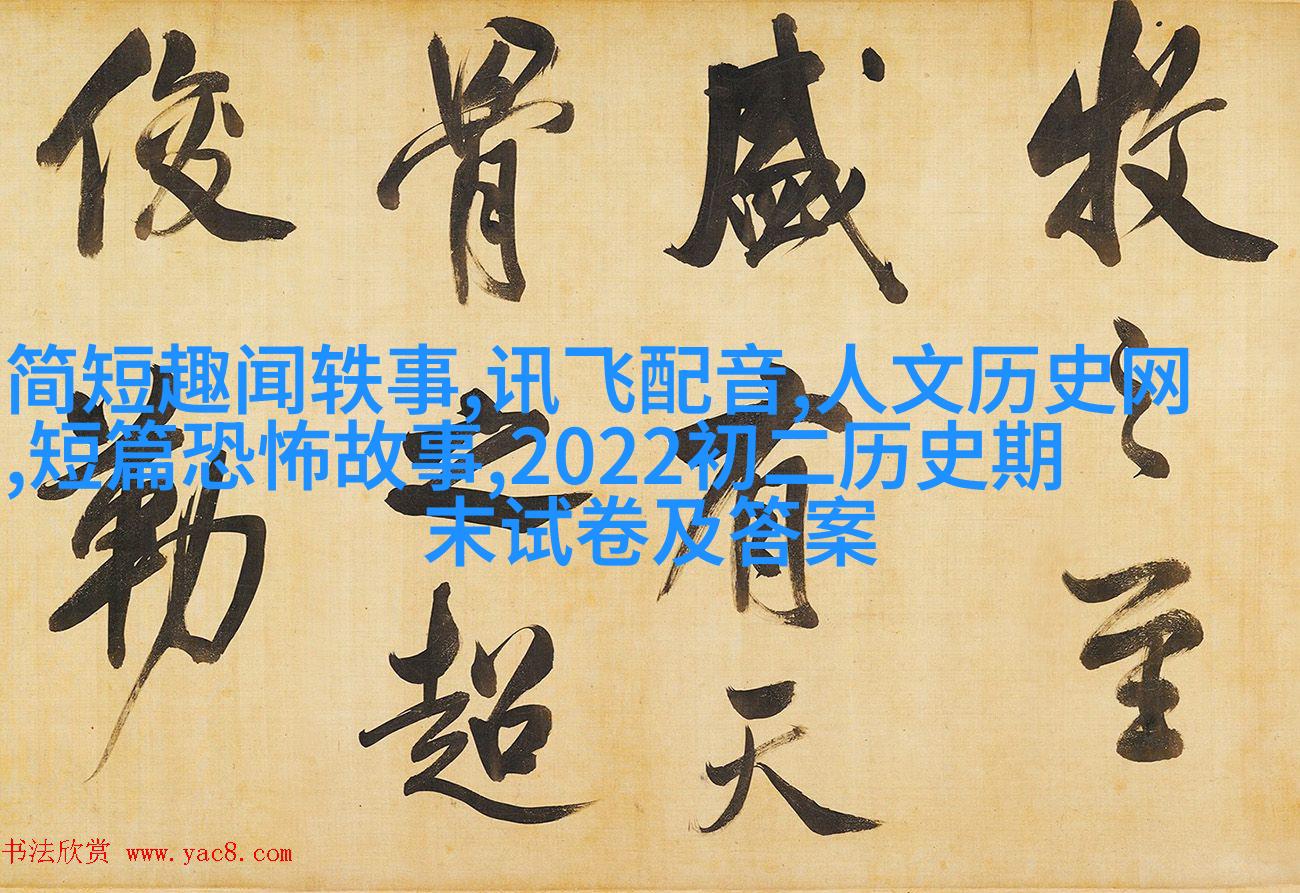 牧之至
盛有天
骨之超
俊勒
简短趣闻轶事,讯飞配音,人文历史网
,短篇恐怖故事,2022初二历史期
末试卷及答案
书法欣赏 www.yac8.com